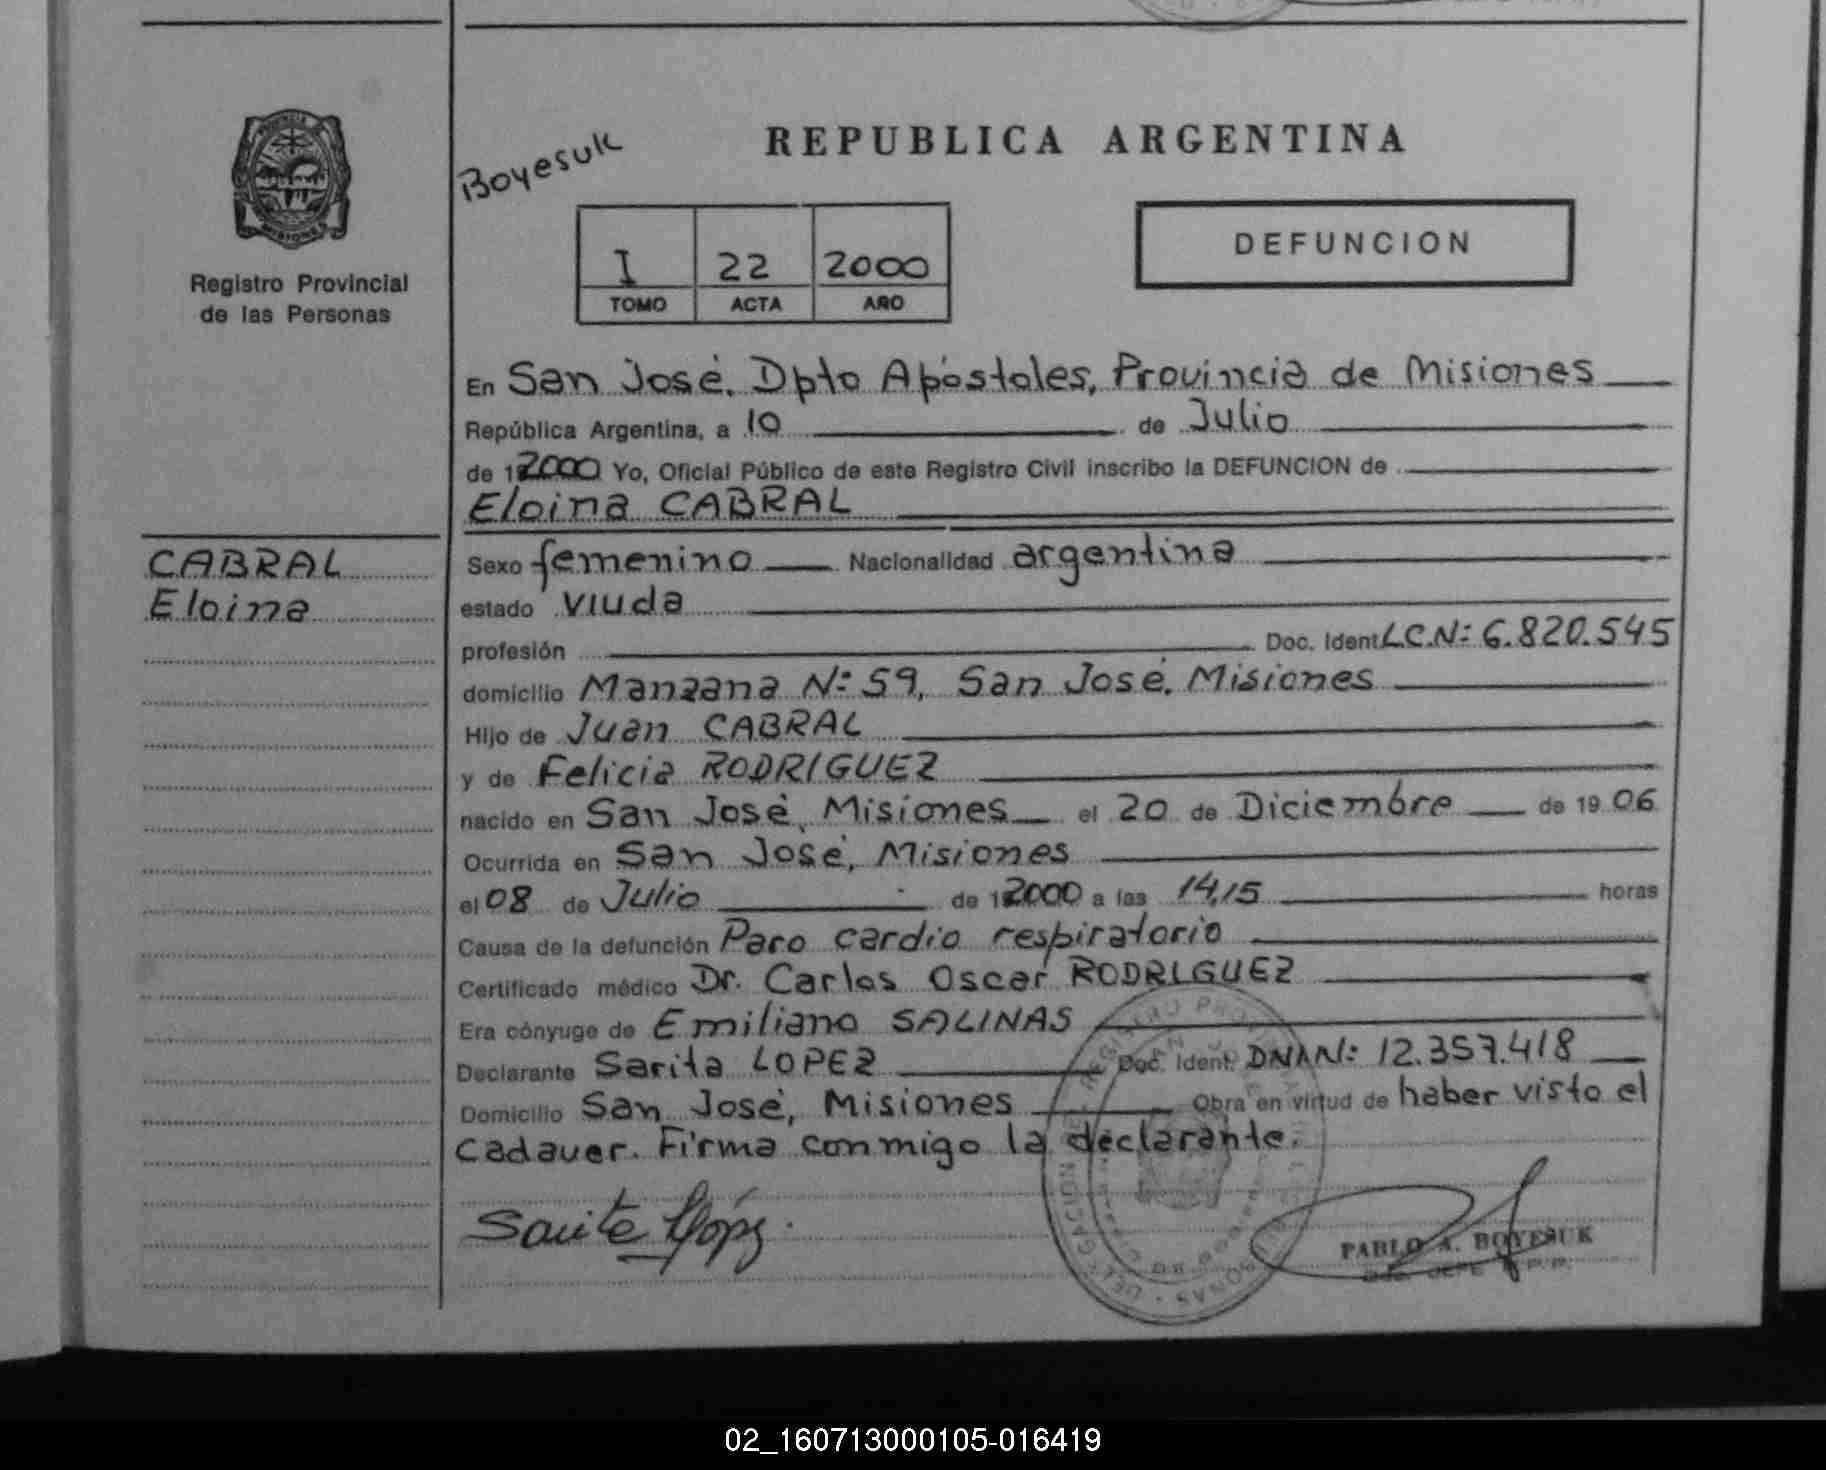 PROVINCIA DE
MISIONES
Registro Provincial
de las Personas
CABRAL
Eloina
Boyesuk
REPUBLICA ARGENTINA
I 22 2000
TOMO ACTA AÑO
DEFUNCION
En San José, Dpto Apóstoles, Provincia de Misiones
República Argentina, a 10 de Julio
de 12000 Yo, Oficial Público de este Registro Civil inscribo la DEFUNCION de
Eloina CABRAL
Sexo femenino Nacionalidad argentina
estado viuda
profesión Doc. Ident L.C.Nº 6.820.545
domicilio Manzana Nº 59, San José, Misiones
Hijo de Juan CABRAL
y de Felicia RODRIGUEZ
nacido en San José, Misiones el 20 de Diciembre de 1906
Ocurrida en San José, Misiones
el 08 de Julio de 12000 a las 14,15 horas
Causa de la defunción Paro cardio respiratorio
Certificado médico Dr. Carlos Oscar RODRIGUEZ
Era cónyuge de Emiliano SALINAS
Declarante Sarita LOPEZ Doc. Ident. DNI Nº 12.357.418
Domicilio San José, Misiones Obra en virtud de haber visto el
cadaver. Firma conmigo la declarante.
Sarita López
PABLO A. BOYESUK
02_160713000105-016419